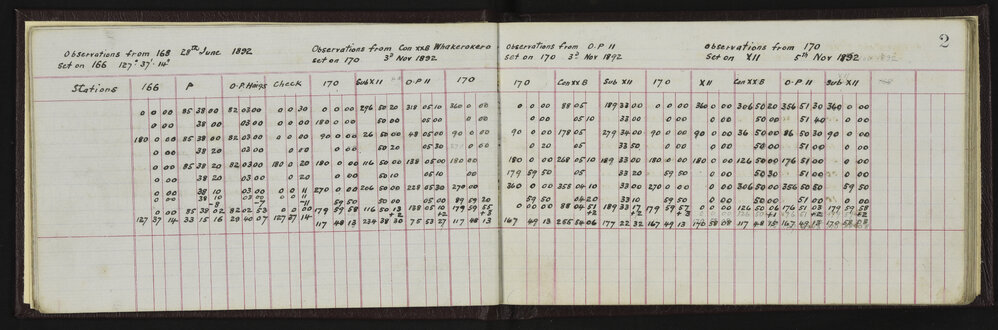 2
Observations from 168 28th June 1892
Set on 166 127° 37' 14"
Observations from Con XXB Whakerokero
set on 170 3d Nov 1892
Observations from O.P 11
set on 170 3d Nov 1892
Observations from 170
Set on XII 5th Nov 1892
Stations 166 P O.P Haigs Check 170 Sub XII O.P 11 170 170 Con XX B Sub XII 170 XII Con XX B O.P 11 Sub XII
0 0 00 85 38 00 82 03 00 0 0 30 0 0 00 296 50 20 318 05 10 360 0 00 0 0 00 88 05 189 33 00 0 0 00 360 0 00 306 50 20 356 51 30 360 0 00
0 00 38 00 03 00 0 00 180 0 00 50 00 05 00 0 00 0 00 05 10 33 00 0 00 0 00 50 00 51 40 0 00
180 0 00 85 38 00 82 03 00 0 00 90 0 00 26 50 00 48 05 00 90 0 00 90 0 00 178 05 279 34 00 90 0 00 90 0 00 36 50 00 86 50 30 90 0 00
0 00 38 20 03 00 0 00 0 00 50 20 05 30 0 20 05 33 50 0 00 0 00 50 00 51 00 0 00
0 00 85 38 20 82 03 00 180 0 20 180 0 00 116 50 00 138 05 10 180 00 180 0 00 268 05 10 189 33 00 180 0 00 180 0 00 126 50 00 176 51 00 0 00
0 00 38 20 03 00 0 20 0 00 50 00 05 10 00 179 59 50 05 33 20 59 50 0 00 50 30 51 00 0 00
0 00 38 10 03 00 0 11 270 0 00 206 50 00 228 05 30 270 00 360 0 00 358 04 10 33 00 270 0 00 0 00 306 50 00 356 50 50 59 50
0 00 38 10 03 00 0 11 59 50 50 00 05 00 89 59 20 59 50 04 20 33 10 59 50 0 00 50 00 51 00 0 00
0 00 85 38 02 82 02 53 0 0 00 179 59 58 116 50 13 138 05 10 179 59 55 0 00 88 04 51 189 33 17 179 59 57 0 00 126 50 06 176 51 03 179 59 58
+2 +2 +3 +2 +2 +3 +1 +2
127 37 14 33 15 16 29 40 07 127 37 14 117 48 13 234 38 30 75 53 27 117 48 13 167 49 13 255 54 06 177 22 32 167 49 13 170 58 08 117 48 15 167 49 13 170 58 08